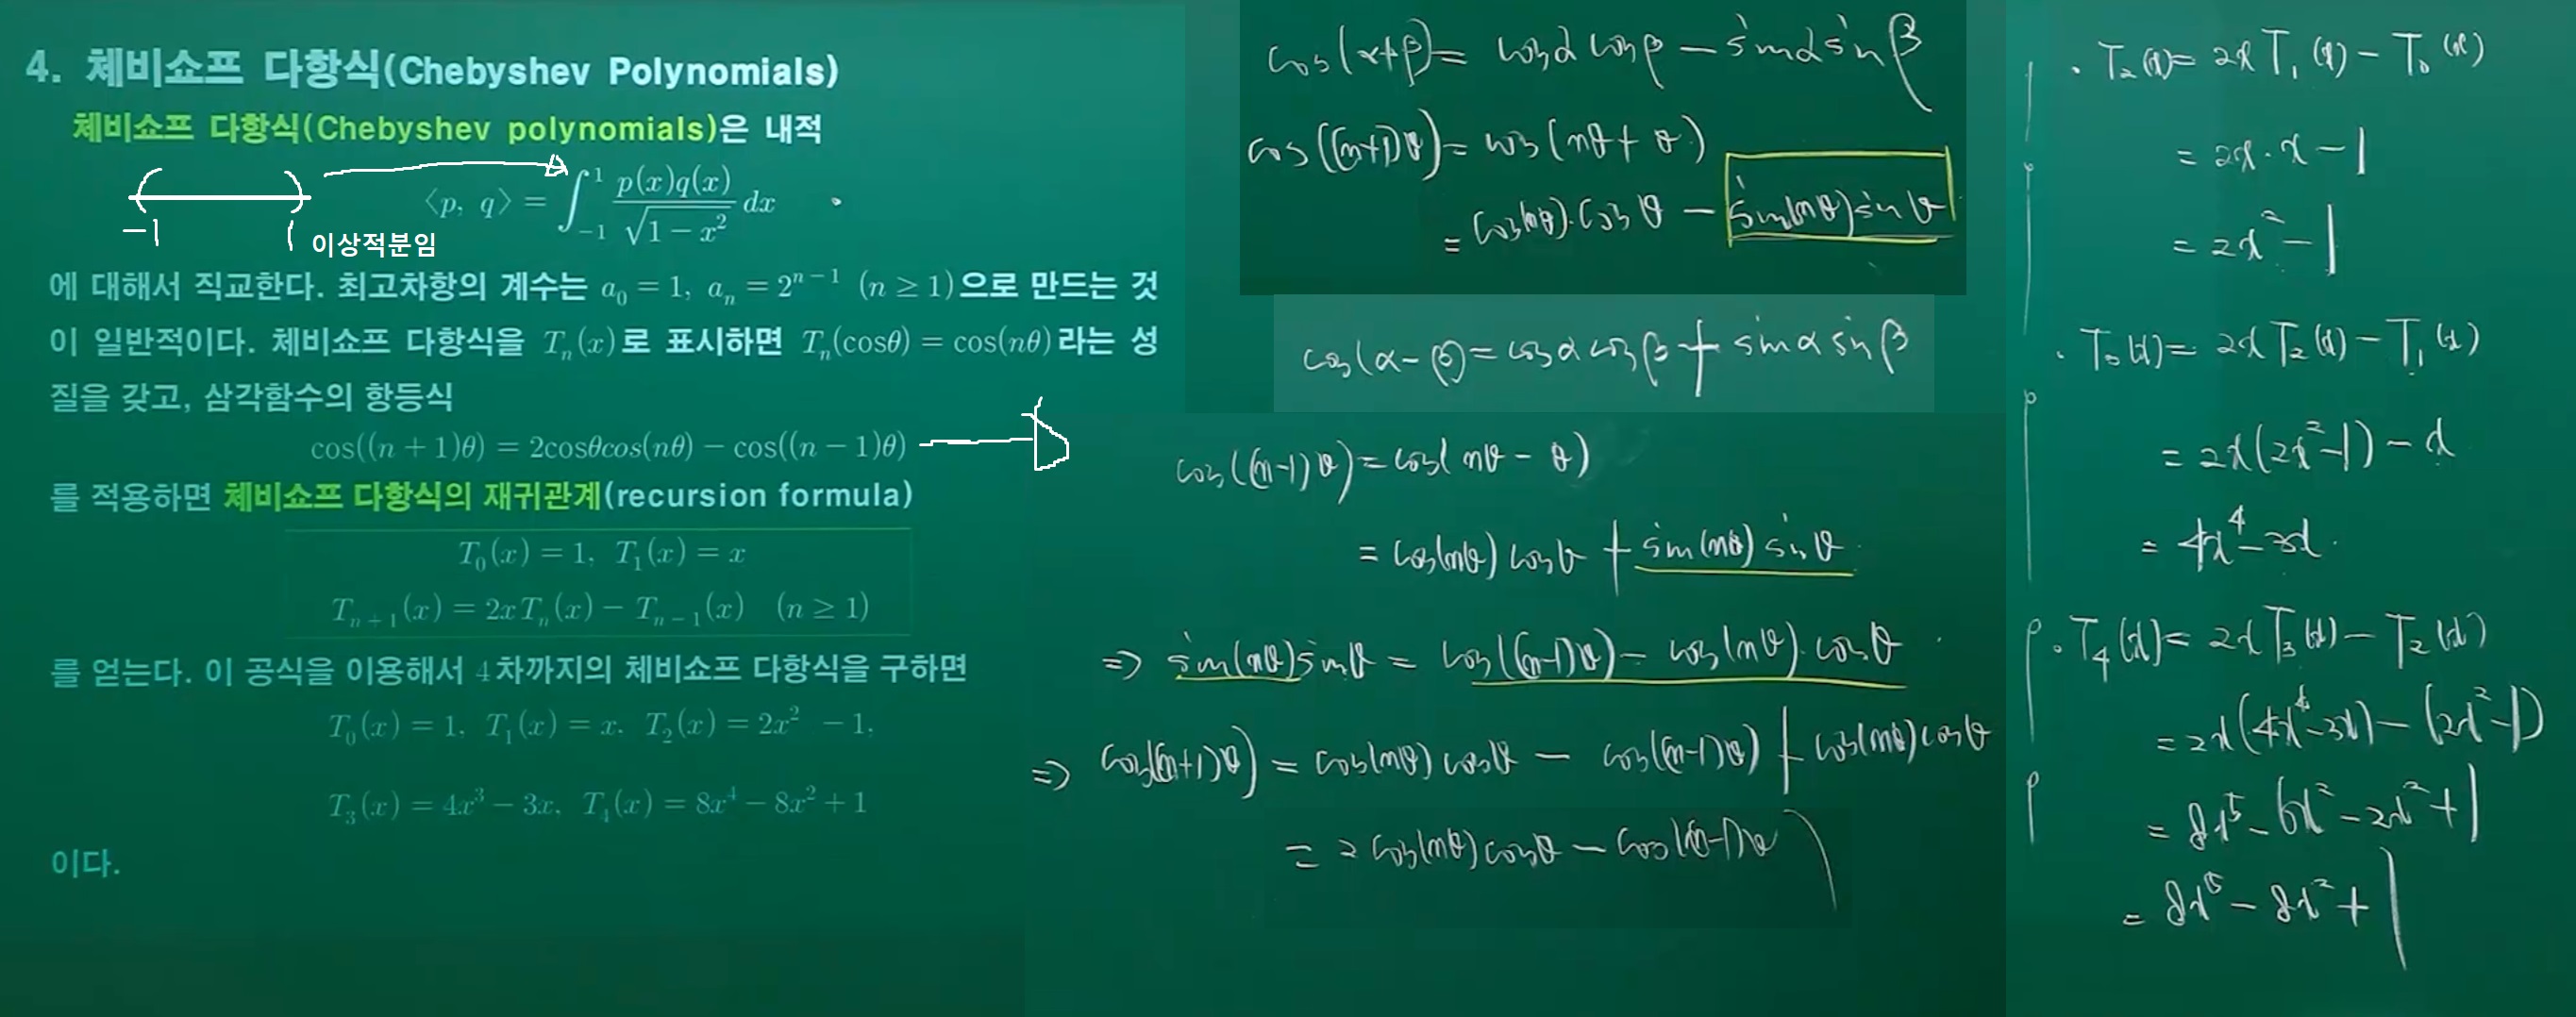 4. 체비쇼프 다항식(Chebyshev Polynomials)
체비쇼프 다항식(Chebyshev polynomials)은 내적
⟨p, q⟩ = ∫_{-1}^{1} p(x)q(x)/√(1-x²) dx
-1 1 이상적분임
에 대해서 직교한다. 최고차항의 계수는 a₀ = 1, aₙ = 2ⁿ⁻¹ (n ≥ 1)으로 만드는 것
이 일반적이다. 체비쇼프 다항식을 Tₙ(x)로 표시하면 Tₙ(cosθ) = cos(nθ)라는 성
질을 갖고, 삼각함수의 항등식
cos((n+1)θ) = 2cosθcos(nθ) - cos((n-1)θ)
를 적용하면 체비쇼프 다항식의 재귀관계(recursion formula)
T₀(x) = 1, T₁(x) = x
Tₙ₊₁(x) = 2xTₙ(x) - Tₙ₋₁(x) (n ≥ 1)
를 얻는다. 이 공식을 이용해서 4차까지의 체비쇼프 다항식을 구하면
T₀(x) = 1, T₁(x) = x, T₂(x) = 2x² - 1,
T₃(x) = 4x³ - 3x, T₄(x) = 8x⁴ - 8x² + 1
이다.
cos(α+β) = cosα cosβ - sinα sinβ
cos((n+1)θ) = cos(nθ + θ)
= cos(nθ)·cosθ - sin(nθ)sinθ
cos(α-β) = cosα cosβ + sinα sinβ
cos((n-1)θ) = cos(nθ - θ)
= cos(nθ) cosθ + sin(nθ) sinθ
=> sin(nθ)sinθ = cos((n-1)θ) - cos(nθ)·cosθ
=> cos((n+1)θ) = cos(nθ) cosθ - cos((n-1)θ) + cos(nθ)cosθ
= 2cos(nθ)cosθ - cos((n-1)θ)
· T₂(x) = 2x T₁(x) - T₀(x)
= 2x·x - 1
= 2x² - 1
· T₃(x) = 2x T₂(x) - T₁(x)
= 2x(2x²-1) - x
= 4x⁴ - 3x.
· T₄(x) = 2x T₃(x) - T₂(x)
= 2x(4x⁴-3x) - (2x²-1)
= 8x⁵ - 6x² - 2x² + 1
= 8x⁵ - 8x² + 1